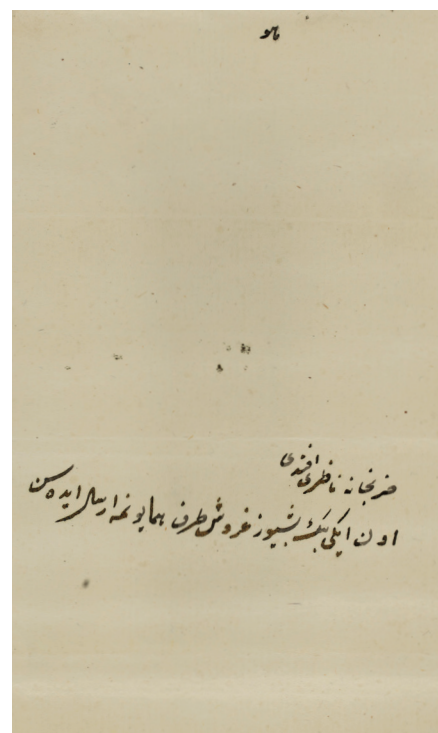 هو
ضربخانه ناظرى افندى
اون ايكى بيك بشيوز غروش طرف همايونمه ارسال ايده سن